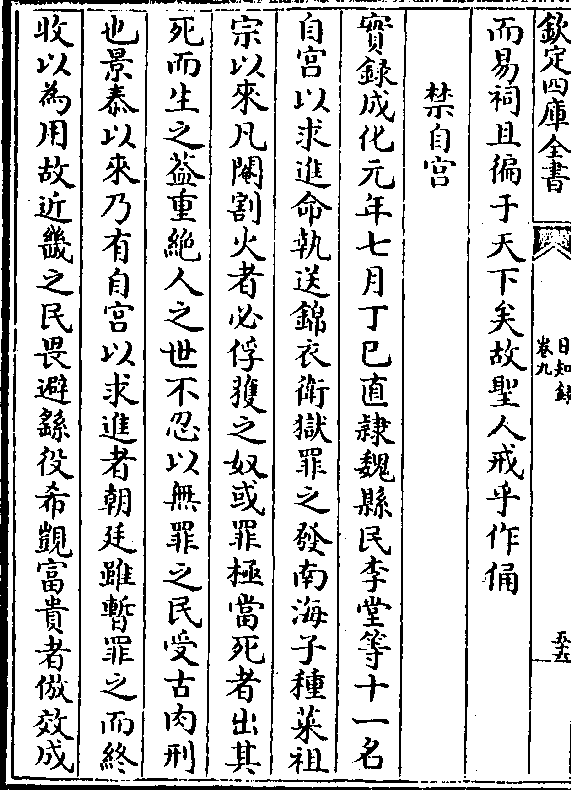 欽定四庫全書
日知錄
卷九
五五
而易祠且徧于天下矣故聖人戒乎作俑
禁自宮
實録成化元年七月丁巳直隷魏縣民李堂等十一名
自宮以求進命執送錦衣衛獄罪之發南海子種菜祖
宗以來凡閹割火者必俘獲之奴或罪極當死者出其
死而生之葢重絶人之世不忍以無罪之民受古肉刑
也景泰以來乃有自宮以求進者朝廷雖暫罪之而終
收以為用故近畿之民畏避繇役希覬富貴者倣效成